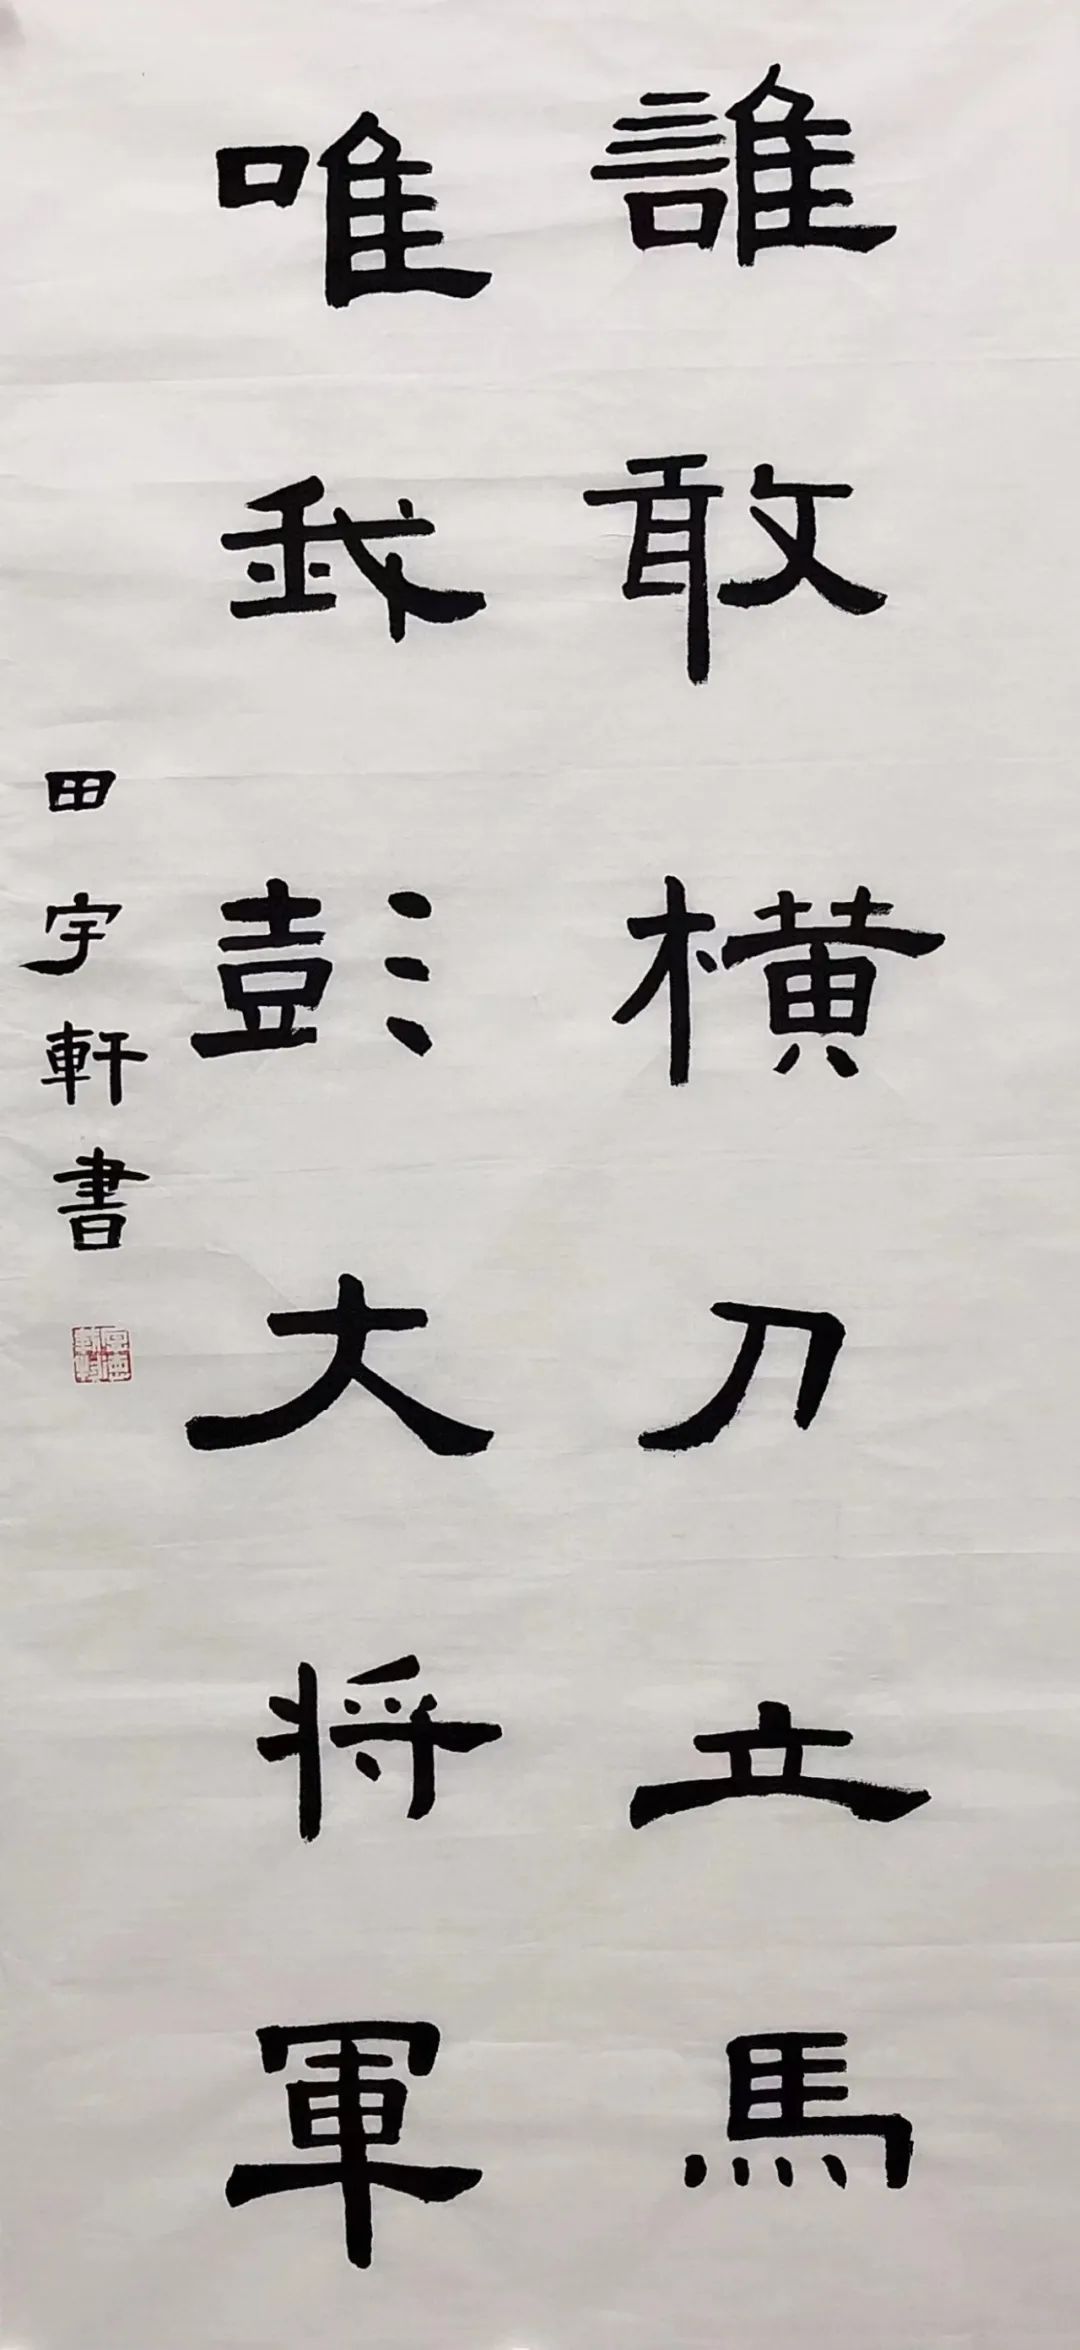 誰敢橫刀立馬
唯我彭大将軍
田宇軒書